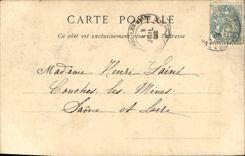 CARTE POSTALE
Ce côté est exclusivement réservé à l'adresse
Madame Henri Lainé
Couches les Mines
Saône et Loire